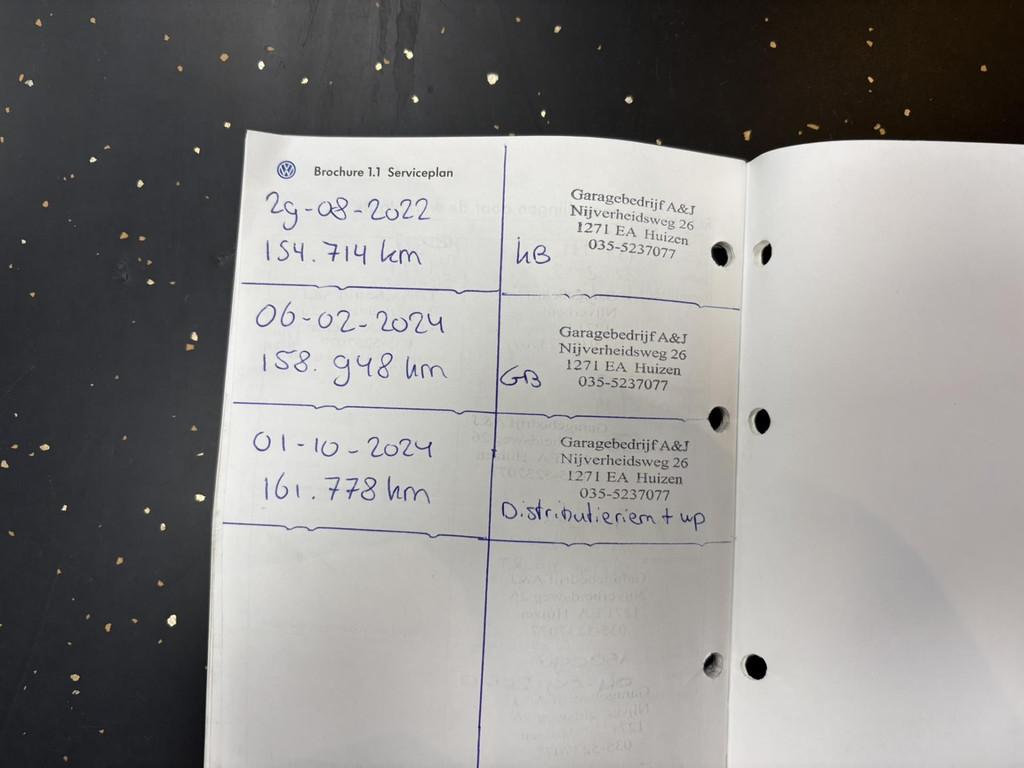 Brochure 1.1 Serviceplan
29-08-2022
154.714 km
Garagebedrijf A&J
Nijverheidsweg 26
1271 EA Huizen
035-5237077
KB
06-02-2024
158.948 km
Garagebedrijf A&J
Nijverheidsweg 26
1271 EA Huizen
035-5237077
GB
01-10-2024
161.778 km
Garagebedrijf A&J
Nijverheidsweg 26
1271 EA Huizen
035-5237077
Distributieriem + wp